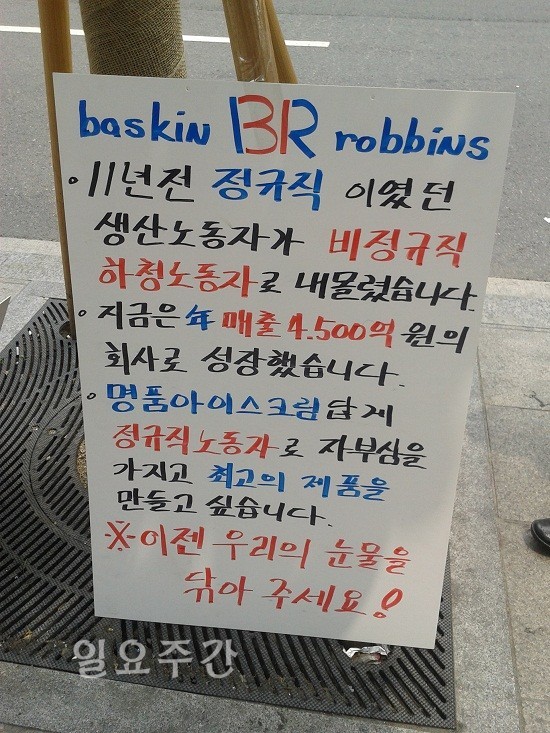 baskin BR robbins
• 11년전 정규직 이였던
생산노동자가 비정규직
하청노동자로 내몰렸습니다.
• 지금은 年 매출 4.500억 원의
회사로 성장했습니다.
• 명품아이스크림답게
정규직노동자로 자부심을
가지고 최고의 제품을
만들고 싶습니다.
※ 이젠 우리의 눈물을
닦아 주세요!
일요주간